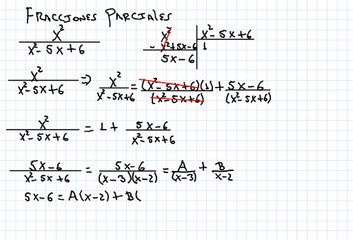 FRACCIONES PARCIALES
x²/(x²-5x+6)
x² | x²-5x+6
-x²+5x-6 | 1
5x-6
x²/(x²-5x+6) ⇒ x²/(x²-5x+6) = (x²-5x+6)(1)/(x²-5x+6) + (5x-6)/(x²-5x+6)
x²/(x²-5x+6) = 1 + (5x-6)/(x²-5x+6)
(5x-6)/(x²-5x+6) = (5x-6)/((x-3)(x-2)) = A/(x-3) + B/(x-2)
5x-6 = A(x-2) + B(